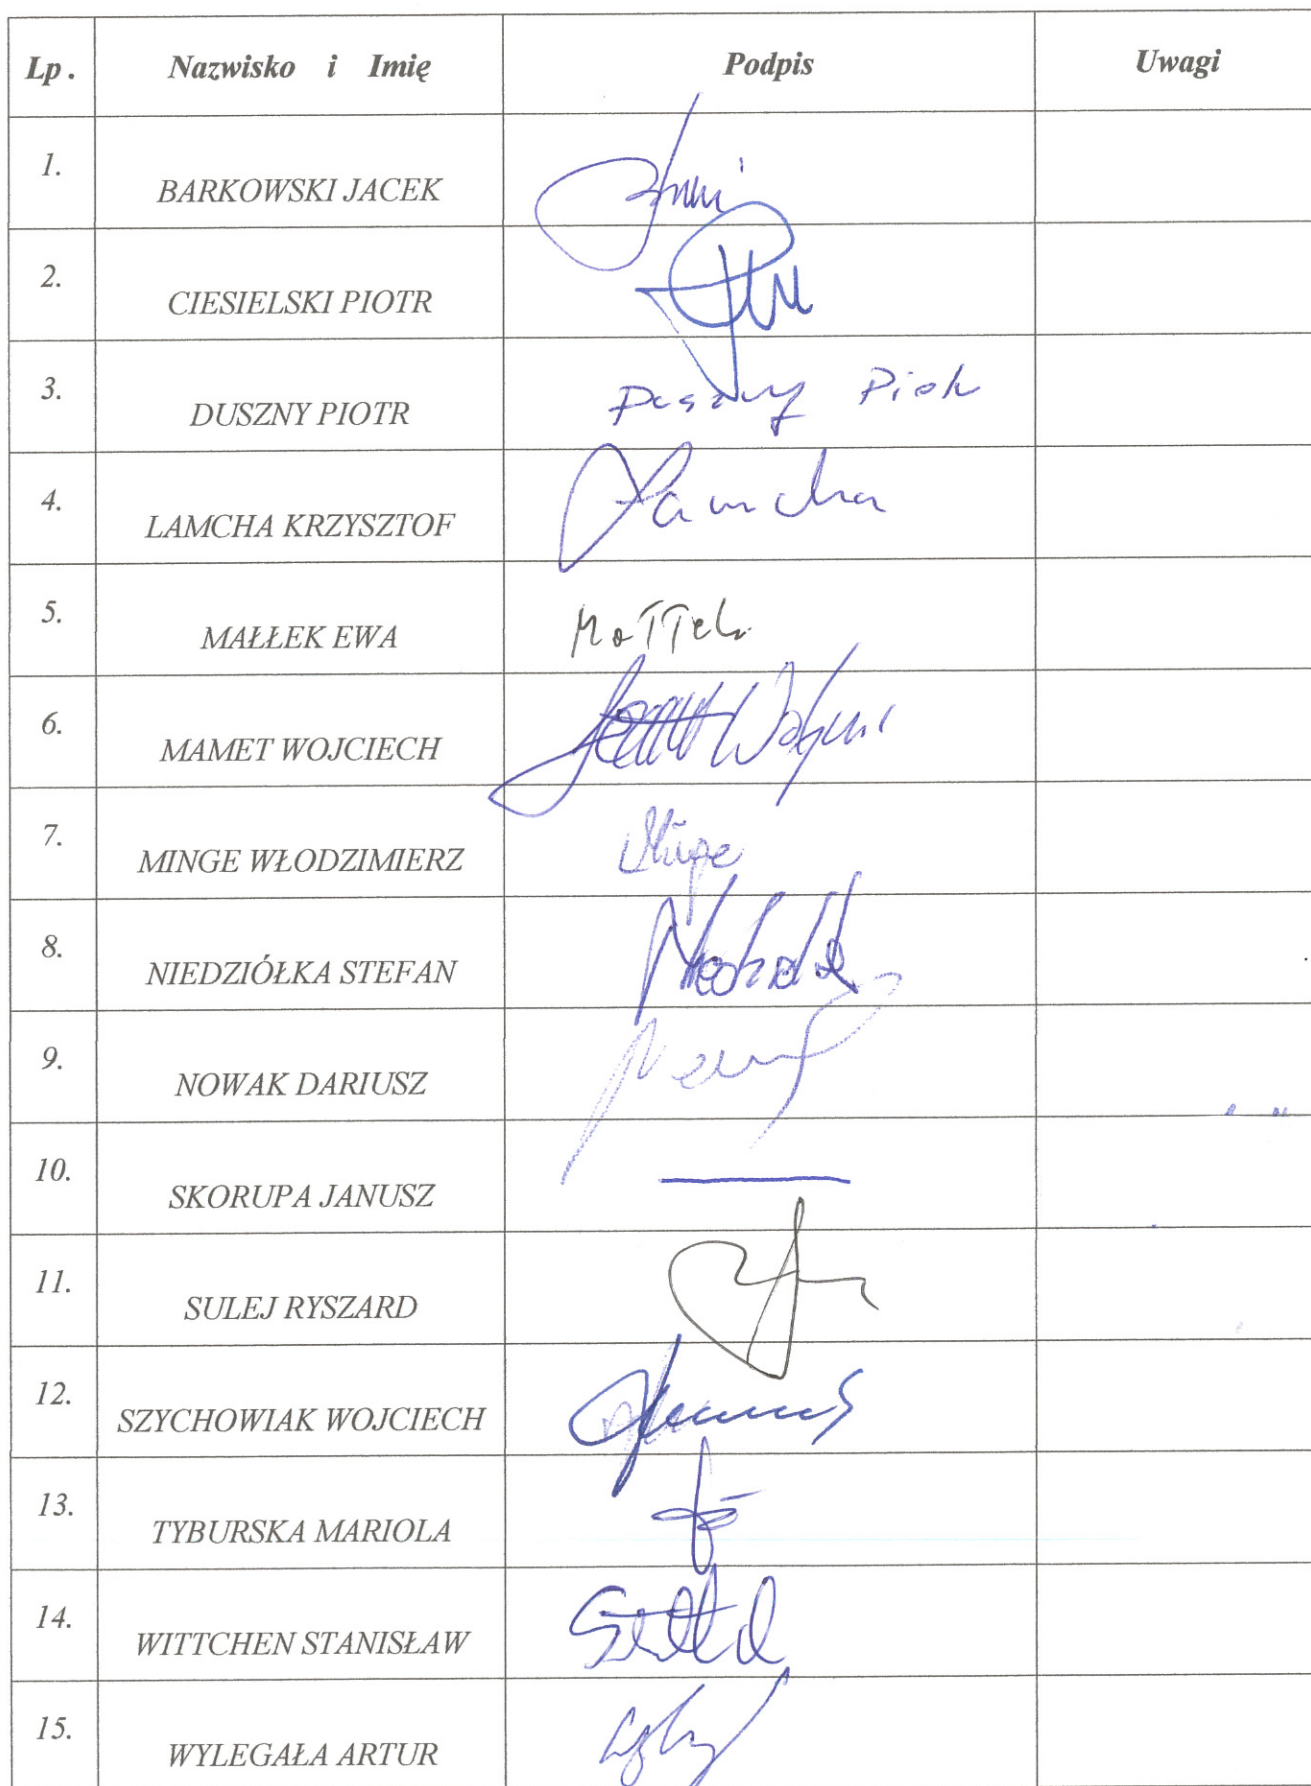 Lp. Nazwisko i Imię Podpis Uwagi
1. BARKOWSKI JACEK
2. CIESIELSKI PIOTR
3. DUSZNY PIOTR Duszny Piotr
4. LAMCHA KRZYSZTOF Lamcha
5. MAŁŁEK EWA Małłek
6. MAMET WOJCIECH
7. MINGE WŁODZIMIERZ Minge
8. NIEDZIÓŁKA STEFAN
9. NOWAK DARIUSZ
10. SKORUPA JANUSZ
11. SULEJ RYSZARD
12. SZYCHOWIAK WOJCIECH
13. TYBURSKA MARIOLA
14. WITTCHEN STANISŁAW
15. WYLEGAŁA ARTUR